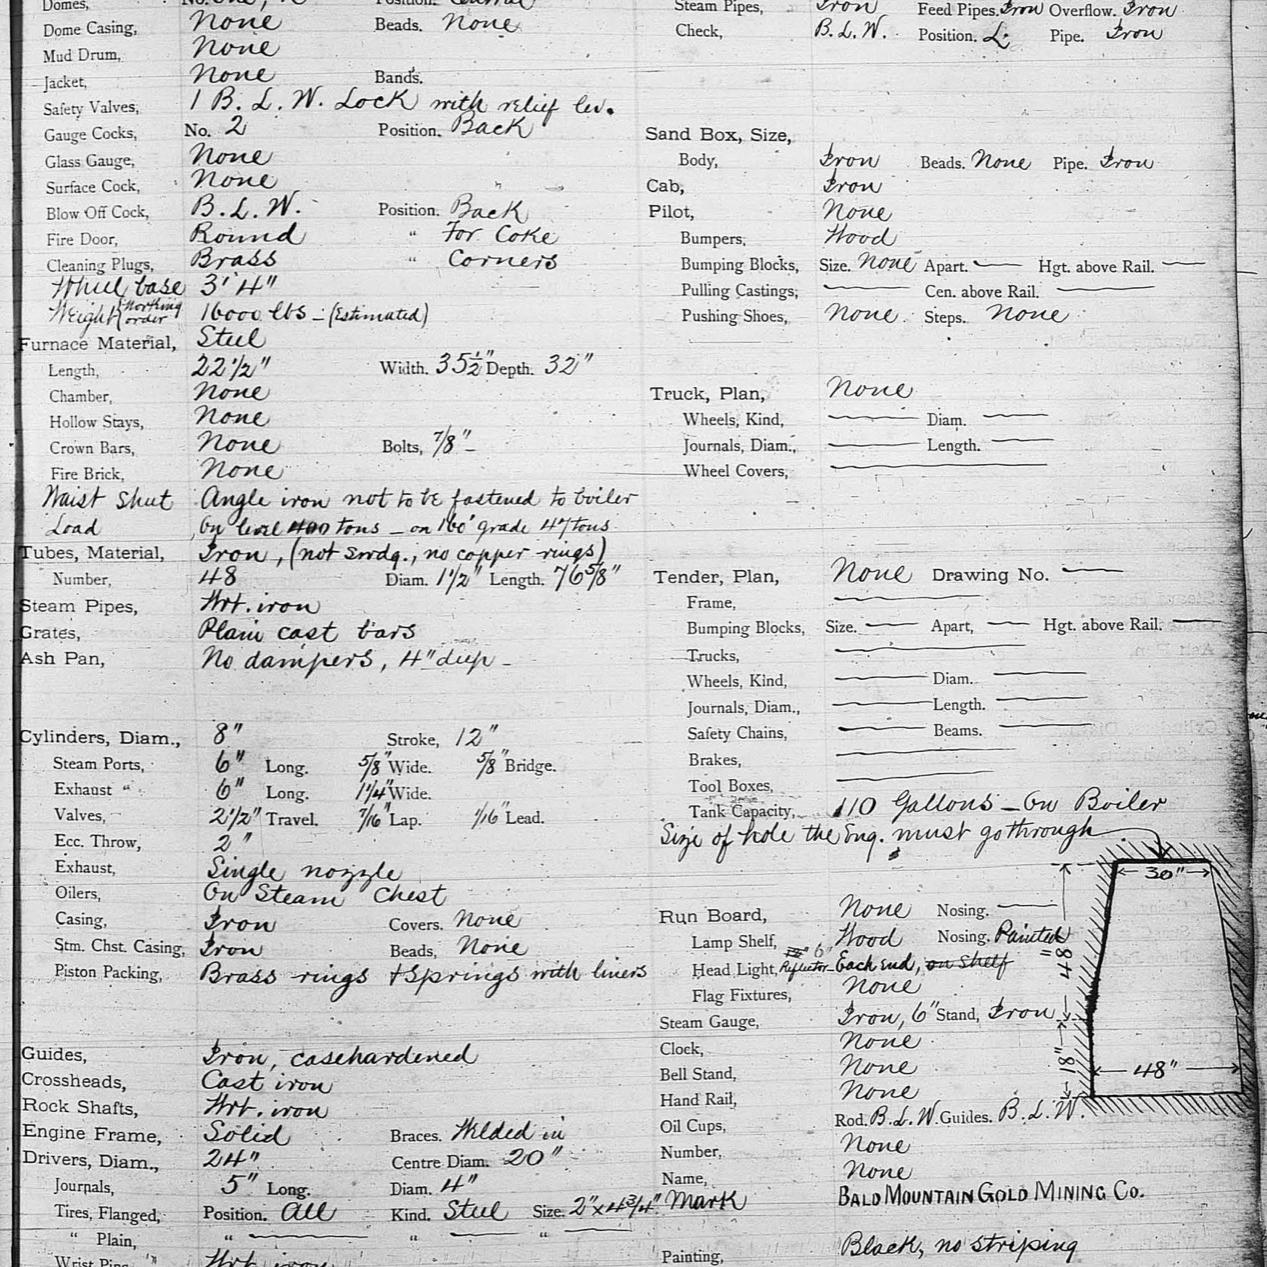 Domes, No.
Dome Casing, None Beads. None
Mud Drum, None
Jacket, None Bands.
Safety Valves, 1 B. L. W. Lock with relief lev.
Gauge Cocks, No. 2 Position. Back
Glass Gauge, None
Surface Cock, None
Blow Off Cock, B. L. W. Position. Back
Fire Door, Round " For Coke
Cleaning Plugs, Brass " Corners
Wheel base 3'4"
Weight working order 16000 lbs - (Estimated)
Furnace Material, Steel
Length, 22 1/2" Width. 35 1/2" Depth. 32"
Chamber, None
Hollow Stays, None
Crown Bars, None Bolts, 7/8"-
Fire Brick, None
Waist Sheet Angle iron not to be fastened to boiler
Load On level 400 tons - on 160' grade 47 tons
Tubes, Material, Iron, (not Swdg., no copper rings)
Number, 48 Diam. 1 1/2" Length. 76 5/8"
Steam Pipes, Wrt. iron
Grates, Plain cast bars
Ash Pan, No dampers, 4" deep -
Cylinders, Diam., 8" Stroke, 12"
Steam Ports, 6" Long. 5/8" Wide. 5/8" Bridge.
Exhaust " 6" Long. 1 1/4" Wide.
Valves, 2 1/2" Travel. 7/16" Lap. 1/16" Lead.
Ecc. Throw, 2"
Exhaust, Single nozzle
Oilers, On Steam Chest
Casing, Iron Covers. None
Stm. Chst. Casing, Iron Beads, None
Piston Packing, Brass rings + springs with liners
Guides, Iron, casehardened
Crossheads, Cast iron
Rock Shafts, Wrt. iron
Engine Frame, Solid Braces. Welded in
Drivers, Diam., 24" Centre Diam. 20"
Journals, 5" Long. Diam. 4"
Tires, Flanged, Position. All Kind. Steel Size. 2" x 4 3/4"
" Plain, " " "
Wrist Pins, " Wrt. iron
Steam Pipes, Iron Feed Pipes. Iron Overflow. Iron
Check, B. L. W. Position. L. Pipe. Iron
Sand Box, Size,
Body, Iron Beads. None Pipe. Iron
Cab, Iron
Pilot, None
Bumpers, Wood
Bumping Blocks, Size. None Apart. Hgt. above Rail.
Pulling Castings, Cen. above Rail.
Pushing Shoes, None Steps. None
Truck, Plan, None
Wheels, Kind, Diam.
Journals, Diam., Length.
Wheel Covers,
Tender, Plan, None Drawing No.
Frame,
Bumping Blocks, Size. Apart, Hgt. above Rail.
Trucks,
Wheels, Kind, Diam.
Journals, Diam., Length.
Safety Chains, Beams.
Brakes,
Tool Boxes,
Tank Capacity, 110 Gallons - On Boiler
Size of hole the Eng. must go through
30"
48"
18"
48"
Run Board, None Nosing.
Lamp Shelf, Wood Nosing. Painted
Head Light, 6" Reflector - Each end, on shelf
Flag Fixtures, None
Steam Gauge, Iron, 6" Stand, Iron
Clock, None
Bell Stand, None
Hand Rail, None
Oil Cups, Rod. B. L. W. Guides. B. L. W.
Number, None
Name, None
Mark BALD MOUNTAIN GOLD MINING CO.
Painting, Black, no striping